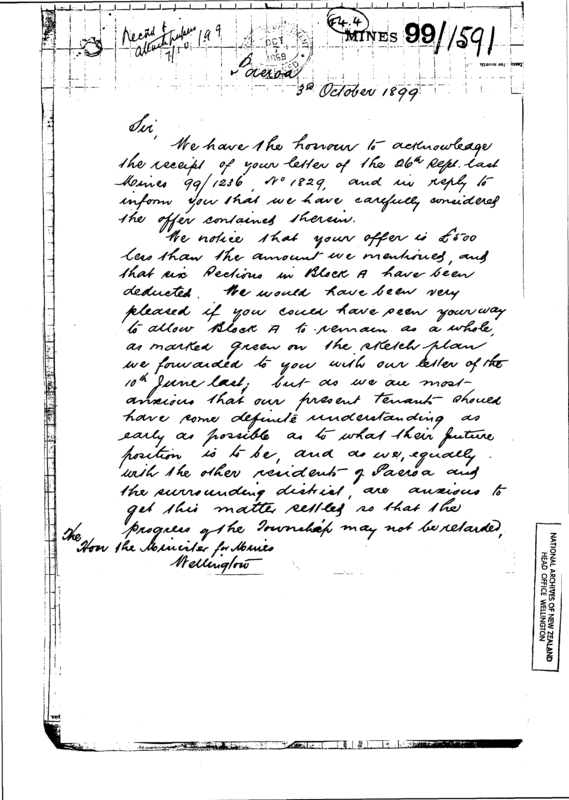 Record &
attach papers
7/10/99
F4.4
MINES 99/1591
OCT
Paeroa
3rd October 1899
Sir,
We have the honour to acknowledge
the receipt of your letter of the 26th Sept. last
Mines 99/1236, No 1829, and in reply to
inform you that we have carefully considered
the offer contained therein.
We notice that your offer is £500
less than the amount we mentioned, and
that six Sections in Block A have been
deducted. We would have been very
pleased if you could have seen your way
to allow Block A to remain as a whole,
as marked green on the sketch plan
we forwarded to you with our letter of the
10th June last; but as we are most
anxious that our present tenants should
have some definite understanding as
early as possible as to what their future
position is to be, and as we, equally
with the other residents of Paeroa and
the surrounding district, are anxious to
get this matter settled so that the
progress of the Township may not be retarded,
The
Hon the Minister for Mines
Wellington
NATIONAL ARCHIVES OF NEW ZEALAND
HEAD OFFICE WELLINGTON